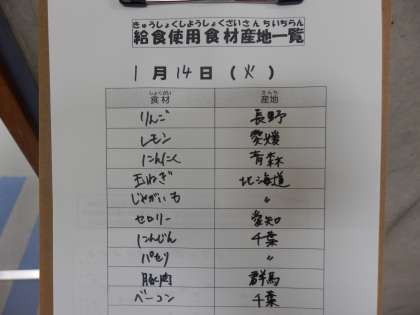 きゅうしょくしようしょくざいさんちいちらん
給食使用食材産地一覧
1月14日(火)
しょくざい さんち
食材 産地
りんご 長野
レモン 愛媛
にんにく 青森
玉ねぎ 北海道
じゃがいも 〃
セロリー 愛知
にんじん 千葉
パセリ 〃
豚肉 群馬
ベーコン 千葉